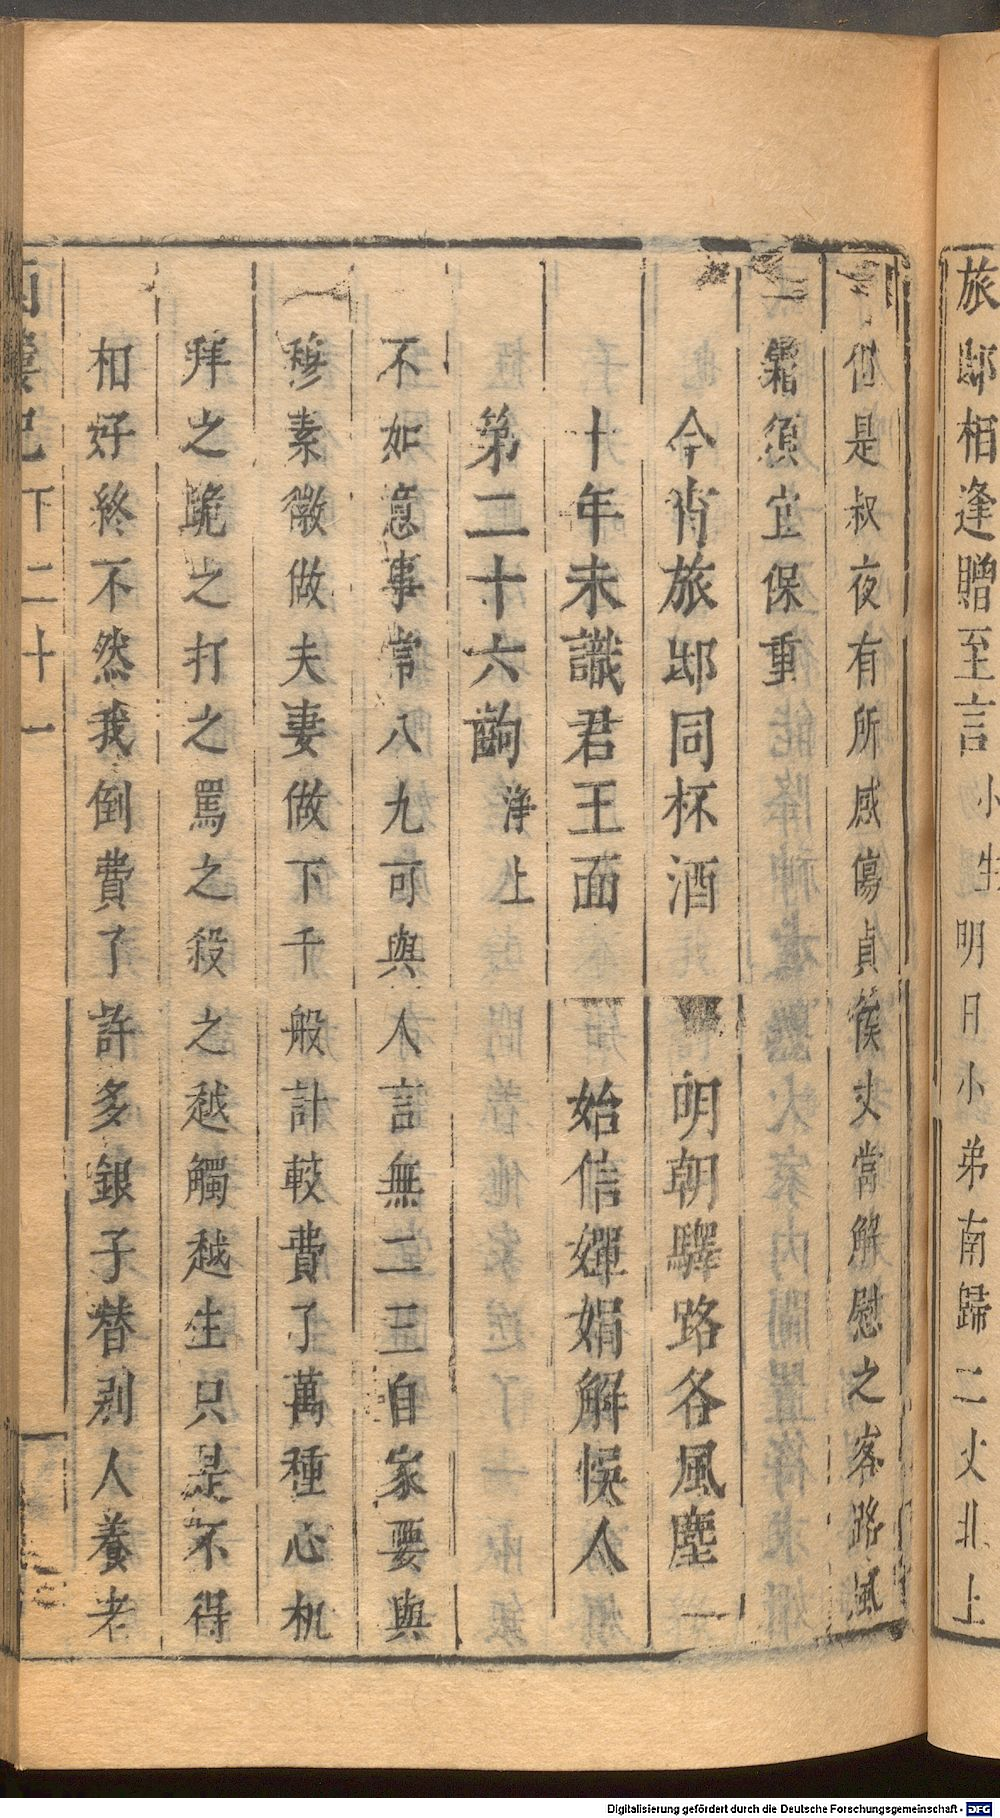 旅邸相逢贈至言小生明日小弟南歸二丈北上
但是叔夜有所感傷貞侯丈當解慰之客路風
霜須宜保重
今宵旅邸同杯酒 明朝驛路各風塵
十年未識君王面 始信嬋娟解悞人
第二十六齣 淨上
不如意事常八九可與人言無二三自家要與
穆素徽做夫妻做下千般計較費了萬種心机
拜之跪之打之罵之殺之越觸越生只是不得
相好終不然我倒費了許多銀子替別人養老
下二十一
Digitalisierung gefördert durch die Deutsche Forschungsgemeinschaft - DFG